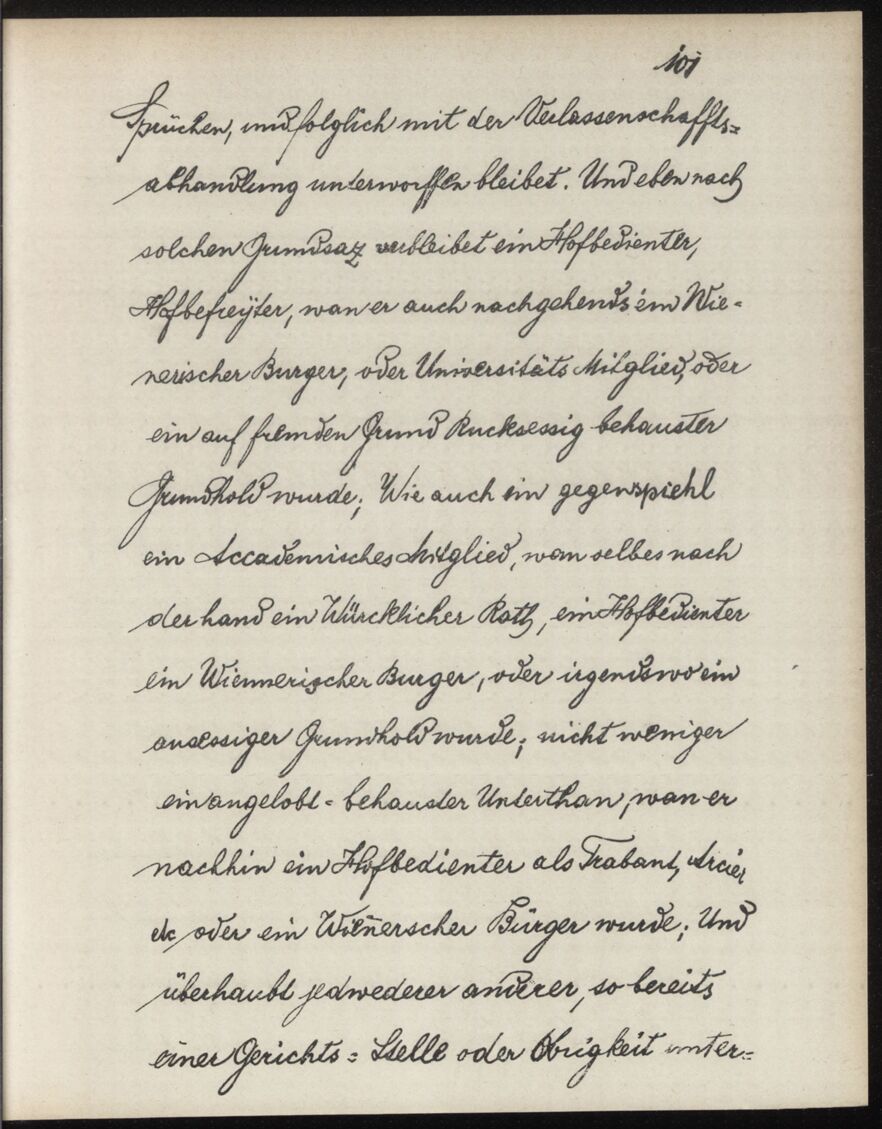 101
Sprüchen, und folglich mit der Verlassenschaffts=
abhandlung unterworffen bleibet. Und eben nach
solchen Grundsaz verbleibet ein Hofbedienter,
Hofbefreÿter, wan er auch nachgehends ein Wie-
nerischer Burger, oder Universitäts Mitglied, oder
ein auf fremden Grund Rucksessig behauster
Grundhold wurde; Wie auch ein gegenspiehl
ein Accademisches Mitglied, wan selbes nach
der hand ein Würcklicher Rath, ein Hofbedienter
ein Wiennerischer Burger, oder irgendswo ein
ansessiger Grundhold wurde; nicht weniger
ein angelobt=behauster Unterthan, wan er
nachhin ein Hofbedienter als Trabant, Arcier
etc oder ein Wien̄erscher Bürger wurde; Und
überhaubt jedwederer anderer, so bereits
einer Gerichts=Stelle oder Obrigkeit unter=